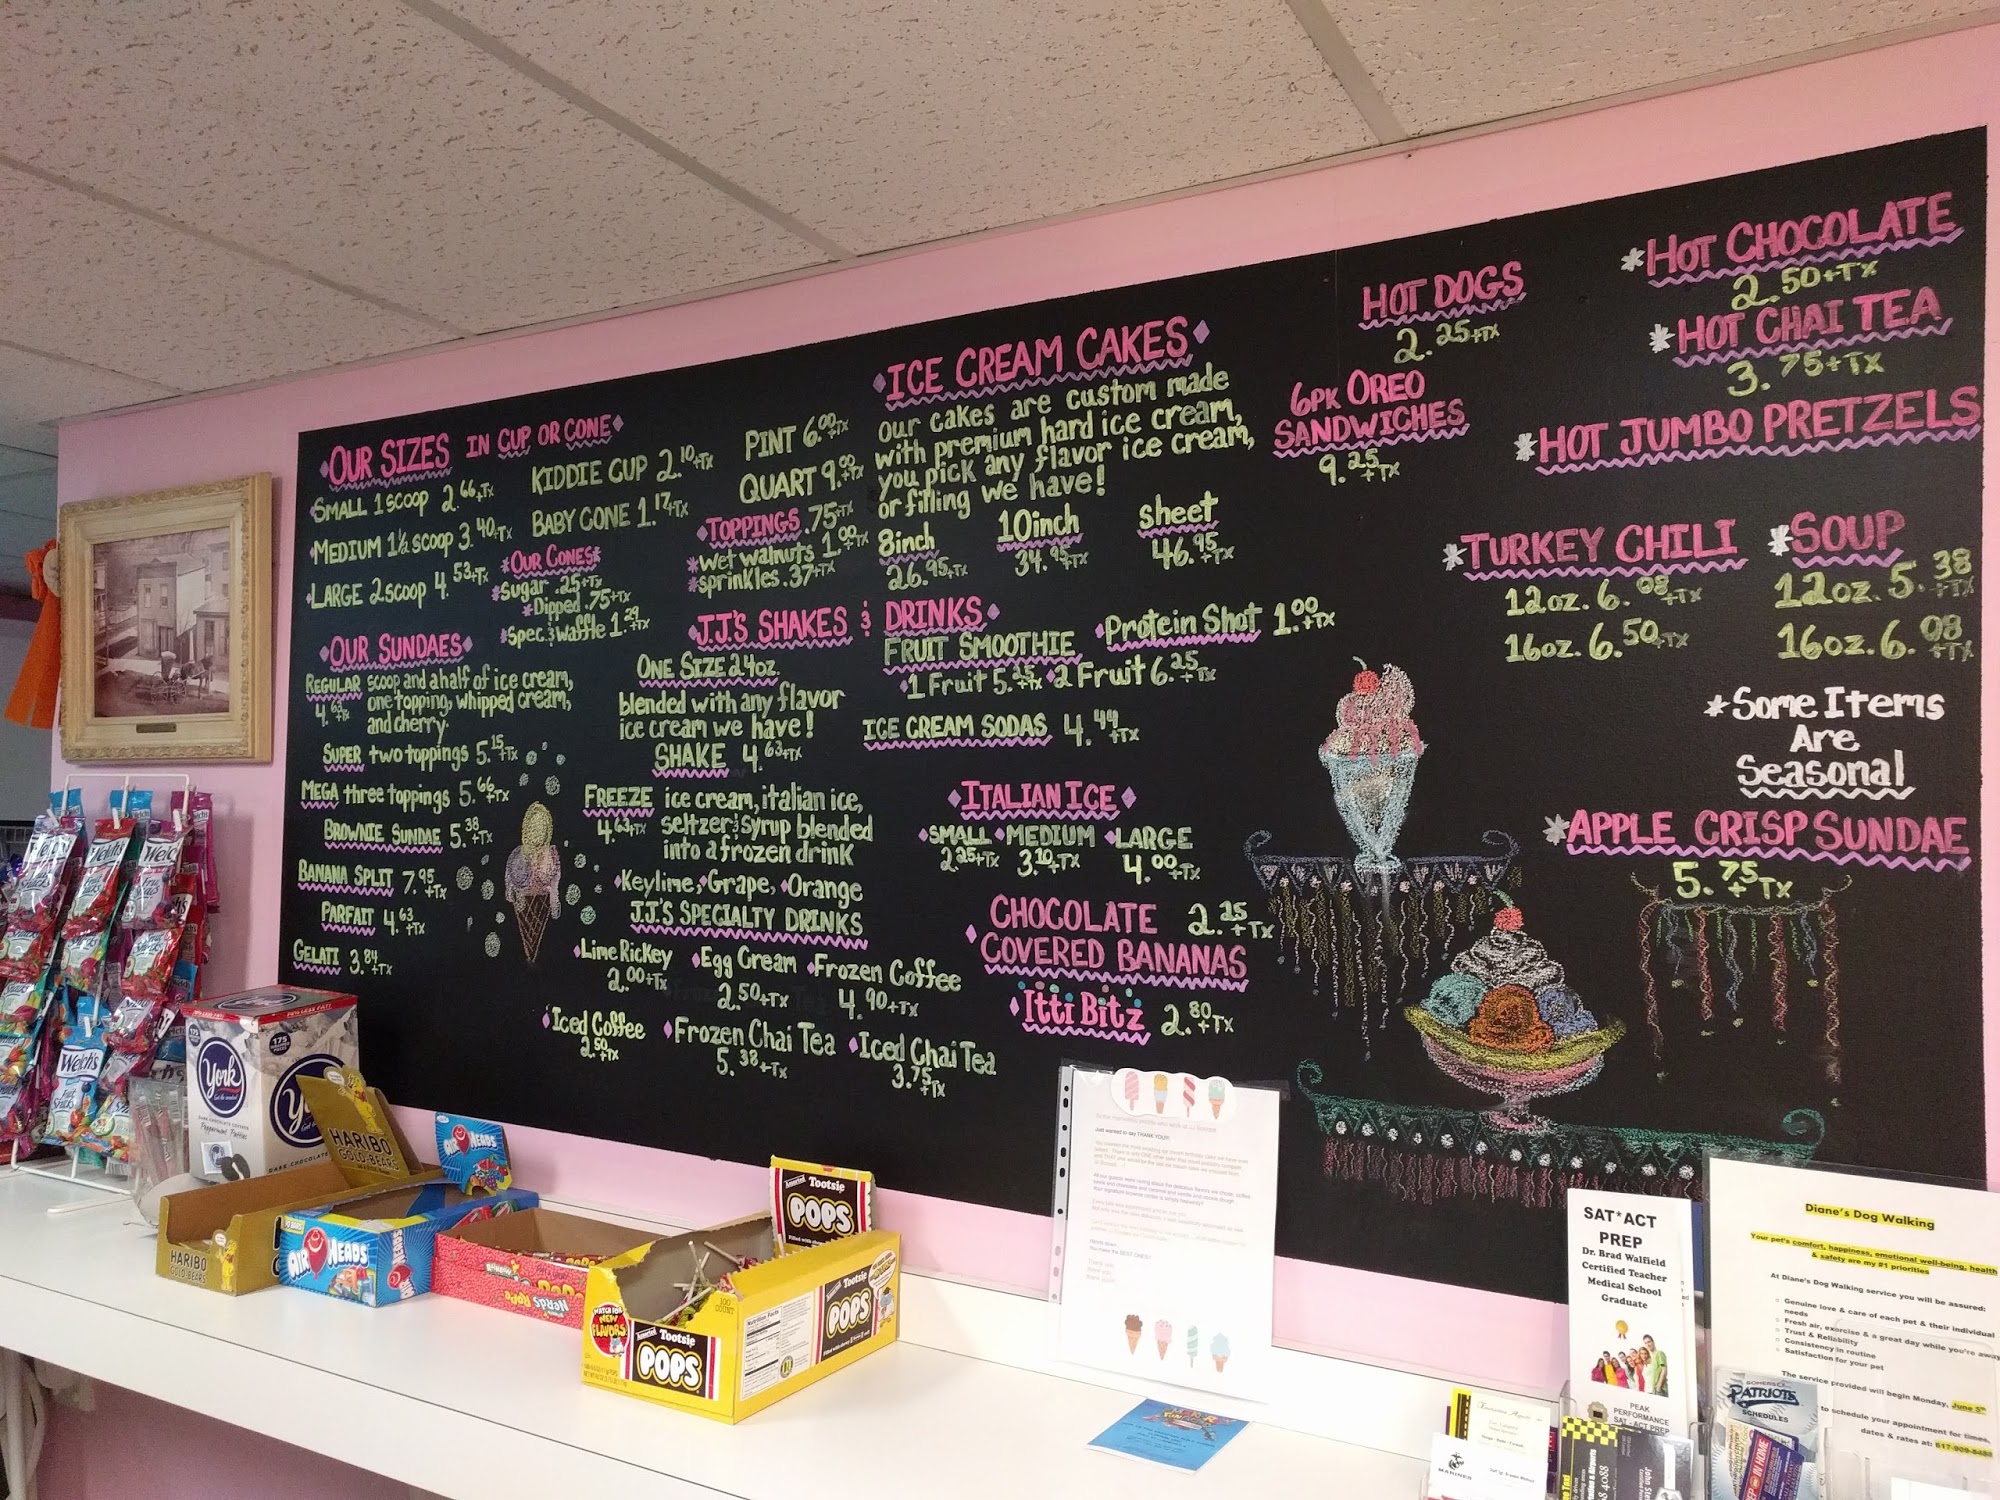 OUR SIZES IN CUP OR CONE
SMALL 1 scoop 2.66+Tx
MEDIUM 1½ scoop 3.40+Tx
LARGE 2 scoop 4.53+Tx
KIDDIE CUP 2.10+Tx
BABY CONE 1.17+Tx
*OUR CONES*
*Sugar .25+Tx
*Dipped .75+Tx
*Spec. & Waffle 1.29+Tx
PINT 6.00+Tx
QUART 9.00+Tx
TOPPINGS .75+Tx
*Wet walnuts 1.00+Tx
*sprinkles .37+Tx
OUR SUNDAES
REGULAR scoop and a half of ice cream,
4.63+Tx one topping, whipped cream,
and cherry.
SUPER two toppings 5.15+Tx
MEGA three toppings 5.66+Tx
BROWNIE SUNDAE 5.38+Tx
BANANA SPLIT 7.95+Tx
PARFAIT 4.63+Tx
GELATI 3.84+Tx
J.J.'S SHAKES & DRINKS
ONE SIZE 24oz.
blended with any flavor
ice cream we have!
SHAKE 4.63+Tx
FREEZE ice cream, italian ice,
4.63+Tx seltzer & syrup blended
into a frozen drink
Keylime, Grape, Orange
J.J.'S SPECIALTY DRINKS
Lime Rickey
2.00+Tx
Egg Cream
2.50+Tx
Frozen Coffee
4.90+Tx
Iced Coffee
2.50+Tx
Frozen Chai Tea
5.38+Tx
Iced Chai Tea
3.75+Tx
FRUIT SMOOTHIE
1 Fruit 5.25+Tx 2 Fruit 6.25+Tx
Protein Shot 1.00+Tx
ICE CREAM SODAS 4.44+Tx
ICE CREAM CAKES
our cakes are custom made
with premium hard ice cream,
you pick any flavor ice cream,
or filling we have!
8inch
26.95+Tx
10inch
34.95+Tx
sheet
46.95+Tx
ITALIAN ICE
SMALL MEDIUM LARGE
2.25+Tx 3.10+Tx 4.00+Tx
CHOCOLATE 2.25+Tx
COVERED BANANAS
Itti Bitz 2.80+Tx
HOT DOGS
2.25+Tx
6PK OREO
SANDWICHES
9.25+Tx
*HOT CHOCOLATE
2.50+Tx
*HOT CHAI TEA
3.75+Tx
*HOT JUMBO PRETZELS
*TURKEY CHILI
12oz. 6.08+Tx
16oz. 6.50+Tx
*SOUP
12oz. 5.38+Tx
16oz. 6.08+Tx
*Some Items
Are
Seasonal
*APPLE CRISP SUNDAE
5.75+Tx
Welch's
York
175
Peppermint Patties
DARK CHOCOLATE
HARIBO
GOLD-BEARS
HARIBO
GOLD-BEARS
AIRHEADS
AIRHEADS
Tootsie
POPS
WATCH FOR
NEW
FLAVORS
100
COUNT
Nutrition Facts
Assorted Tootsie
POPS
Tootsie
POPS
Just wanted to say THANK YOU!!!
SAT*ACT
PREP
Dr. Brad Walfield
Certified Teacher
Medical School
Graduate
PEAK
PERFORMANCE
SAT - ACT PREP
Diane's Dog Walking
Your pet's comfort, happiness, emotional well-being, health
& safety are my #1 priorities
At Diane's Dog Walking service you will be assured:
Genuine love & care of each pet & their individual
needs
Fresh air, exercise & a great day while you're away
Trust & Reliability
Consistency in routine
Satisfaction for your pet
The service provided will begin Monday, June 5th
to schedule your appointment for times,
dates & rates at:
PATRIOTS
SCHEDULES
MARINES